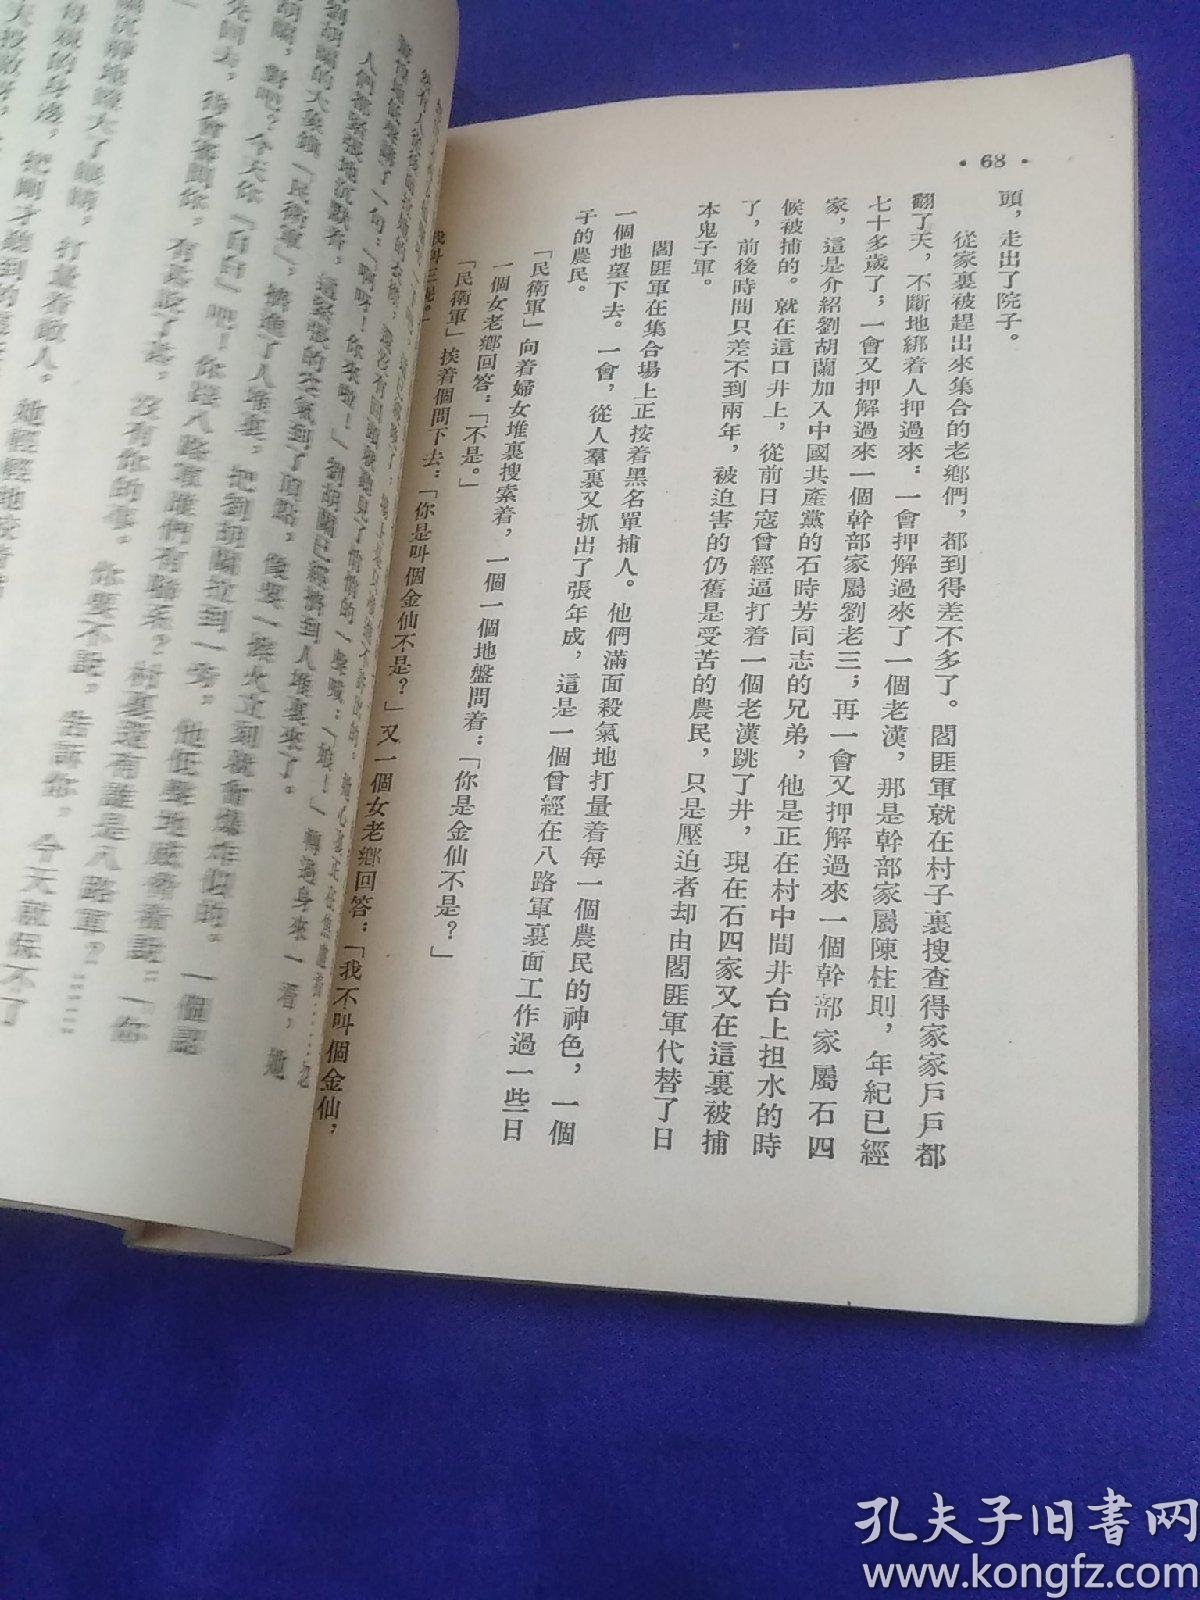 • 68 •
頭，走出了院子。
從家裏被趕出來集合的老鄉們，都到得差不多了。閻匪軍就在村子裏搜查得家家戶戶都
翻了天，不斷地綁着人押過來：一會押解過來了一個老漢，那是幹部家屬陳柱則，年紀已經
七十多歲了，一會又押解過來一個幹部家屬劉老三；再一會又押解過來一個幹部家屬石四
家，這是介紹劉胡蘭加入中國共產黨的石時芳同志的兄弟，他是正在村中間井台上担水的時
候被捕的。就在這口井上，從前日寇曾經逼打着一個老漢跳了井，現在石四家又在這裏被捕
了，前後時間只差不到兩年，被迫害的仍舊是受苦的農民，只是壓迫者却由閻匪軍代替了日
本鬼子軍。
閻匪軍在集合場上正按着黑名單捕人。他們滿面殺氣地打量着每一個農民的神色，一個
一個地望下去。一會，從人羣裏又抓出了張年成，這是一個曾經在八路軍裏面工作過一些日
子的農民。
「民衛軍」向着婦女堆裏搜索着，一個一個地盤問着：「你是金仙不是？」
一個女老鄉回答：「不是。」
「民衛軍」挨着個問下去：「你是叫個金仙不是？」又一個女老鄉回答：「我不叫個金仙，
我叫三妮。」
人們都緊張地沉默着，這緊張的空氣到了頂點，像要一擦火立刻就會爆炸似的。一個認
劉胡蘭的大象鎮「民衛軍」，擠進了人堆裏，把劉胡蘭拉到一旁，他低聲地威脅着說：「你
胡蘭，對吧？今天你「自白」吧！你跟八路軍誰們有聯系？村裏還有誰是八路軍？……
先師夫，待會審問你，有甚說了甚，沒有你的事，你要不說，告訴你，今天就保不了
蘭沉靜地睜大了眼睛，打量着敵人。她輕輕地咬着
母親的身邊，把剛才聽到的
孔夫子旧书网
www.kongfz.com